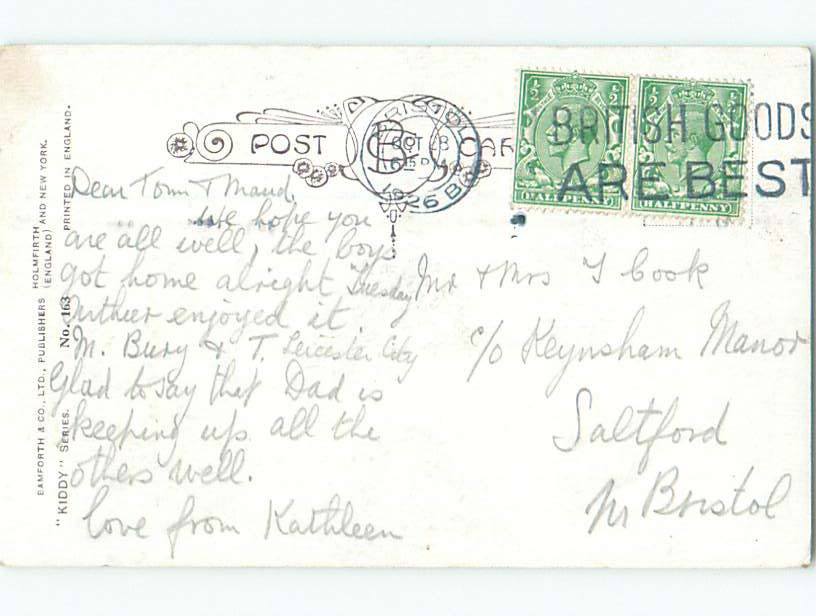 POST CARD
BRISTOL
OCT 8
1926
BRITISH GOODS
ARE BEST
½ ½
HALFPENNY
½ ½
HALFPENNY
BAMFORTH & CO., LTD., PUBLISHERS HOLMFIRTH (ENGLAND) AND NEW YORK.
"KIDDY" SERIES. No. 163 PRINTED IN ENGLAND.
Dear Tom & Maud,
We hope you
are all well, the boys
got home alright Tuesday
enjoyed it
M. Bury & T. Leicester City
Glad to say that Dad is
keeping up all the
others well.
love from Kathleen
Mr & Mrs T Cook
c/o Keynsham Manor
Saltford
Nr Bristol